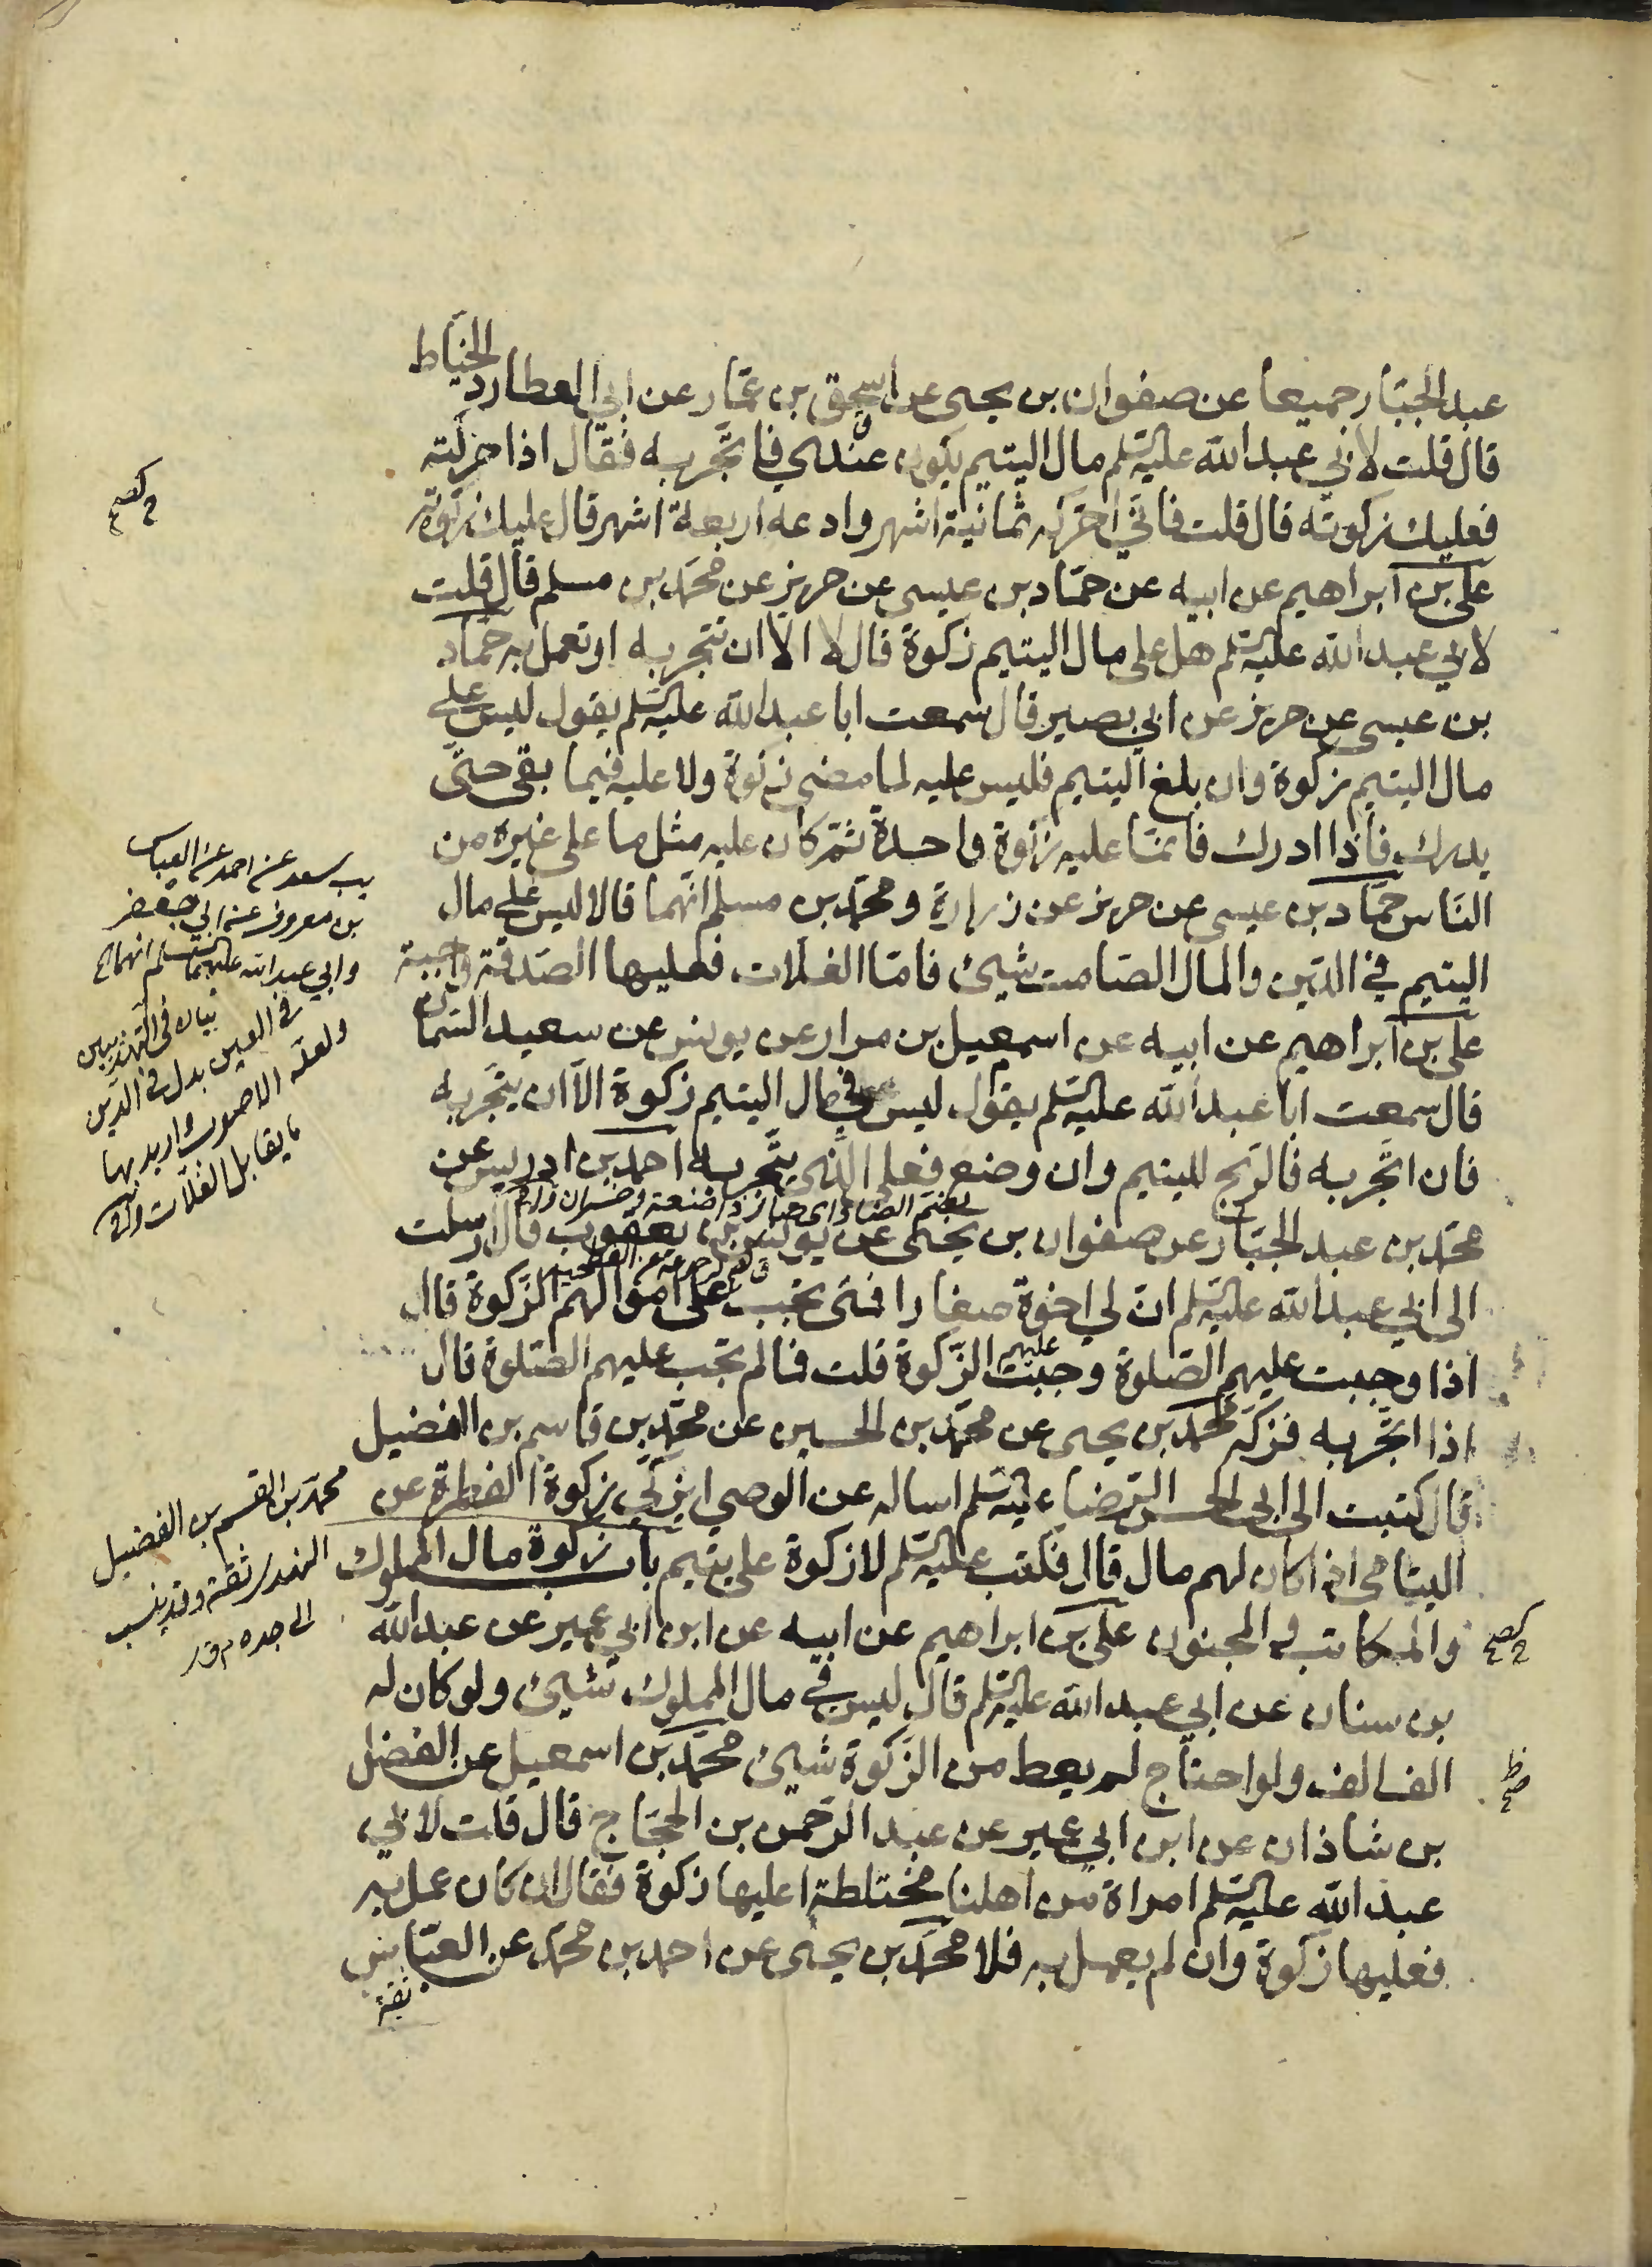 عبد الجبّار جميعا عن صفوان بن يحيى عن اسحق بن عمّار عن ابي العطارد الخيّاط
قال قلت لابي عبد الله عليه السّلم مال اليتيم يكون عندي فاتّجر به فقال اذا حركته
فعليك زكوته قال قلت فانّي احرّكه ثمانية اشهر وادعه اربعة اشهر قال عليك زكوته
علي بن ابراهيم عن ابيه عن حمّاد بن عيسى عن حريز عن محمّد بن مسلم قال قلت
لابي عبد الله عليه السّلم هل على مال اليتيم زكوة قال لا الّا ان تتجر به او تعمل به حمّاد
بن عيسى عن حريز عن ابي بصير قال سمعت ابا عبد الله عليه السّلم يقول ليس على
مال اليتيم زكوة وان بلغ اليتيم فليس عليه لما مضى زكوة ولا عليه فيما بقى حتّى
يدرك فاذا ادرك فانّما عليه زكوة واحدة ثمّ كان عليه مثل ما على غيره من
النّاس حمّاد بن عيسى عن حريز عن زرارة ومحمّد بن مسلم انّهما قالا ليس على مال
اليتيم في الدّين والمال الصّامت شيئ فامّا الغلّات فعليها الصّدقة واجبة
علي بن ابراهيم عن ابيه عن اسمعيل بن مرار عن يونس عن سعيد السّمان
قال سمعت ابا عبد الله عليه السّلم يقول ليس في مال اليتيم زكوة الّا ان يتّجر به
فان اتّجر به فالرّبح لليتيم وان وضع فعلى الّذي يتّجر به احمد بن ادريس عن
محمّد بن عبد الجبّار عن صفوان بن يحيى عن يونس بن يعقوب قال ارسلت
الى ابي عبد الله عليه السّلم انّ لي اخوة صغارا فمتى تجب على اموالهم الزّكوة قال
اذا وجبت عليهم الصّلوة وجبت عليهم الزّكوة قلت فما لم تجب عليهم الصّلوة قال
اذا اتّجر به فزكّه محمّد بن يحيى عن محمّد بن الحسين عن محمّد بن قاسم بن الفضيل
قال كتبت الى ابي الحسن الرّضا عليه السّلم اساله عن الوصي ايزكّي زكوة الفطرة عن
اليتامى اذا كان لهم مال قال فكتب عليه السّلم لا زكوة على يتيم باب زكوة مال المملوك
والمكاتب والمجنون علي بن ابراهيم عن ابيه عن ابن ابي عمير عن عبد الله
بن سنان عن ابي عبد الله عليه السّلم قال ليس في مال المملوك شيئ ولو كان له
الف الف ولو احتاج لم يعط من الزّكوة شيئ محمّد بن اسمعيل عن الفضل
بن شاذان عن ابن ابي عمير عن عبد الرّحمن بن الحجّاج قال قلت لابي
عبد الله عليه السّلم امراة من اهلنا مختلطة اعليها زكوة فقال ان كان عمل به
فعليها زكوة وان لم يعمل به فلا محمّد بن يحيى عن احمد بن محمّد عن العبّاس بن
ثقة
يب سعد عن احمد عن العباس
بن معروف عن ابي جعفر
وابي عبد الله عليهما السلم انهما
بيان في التهذيبين
في العين بدل في الدّين
ولعلّه الاصوب واريد بها
ما يقابل الغلّات
محمّد بن القسم بن الفضيل
ثقة وقد ينسب
الى جده